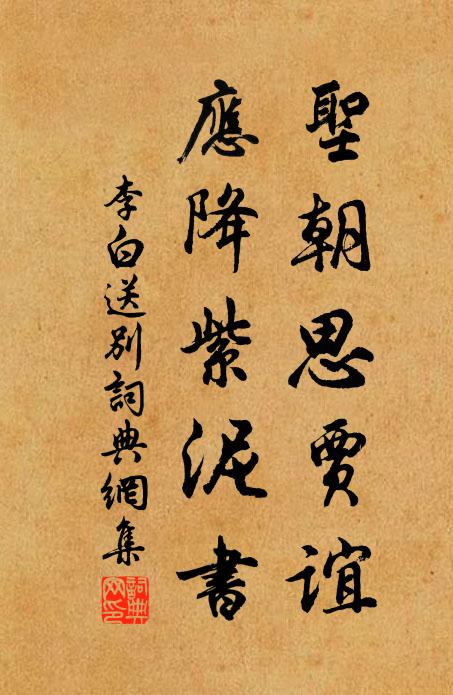 聖朝思賈誼
應降紫泥書
李白送別詞典網集
詞典網印